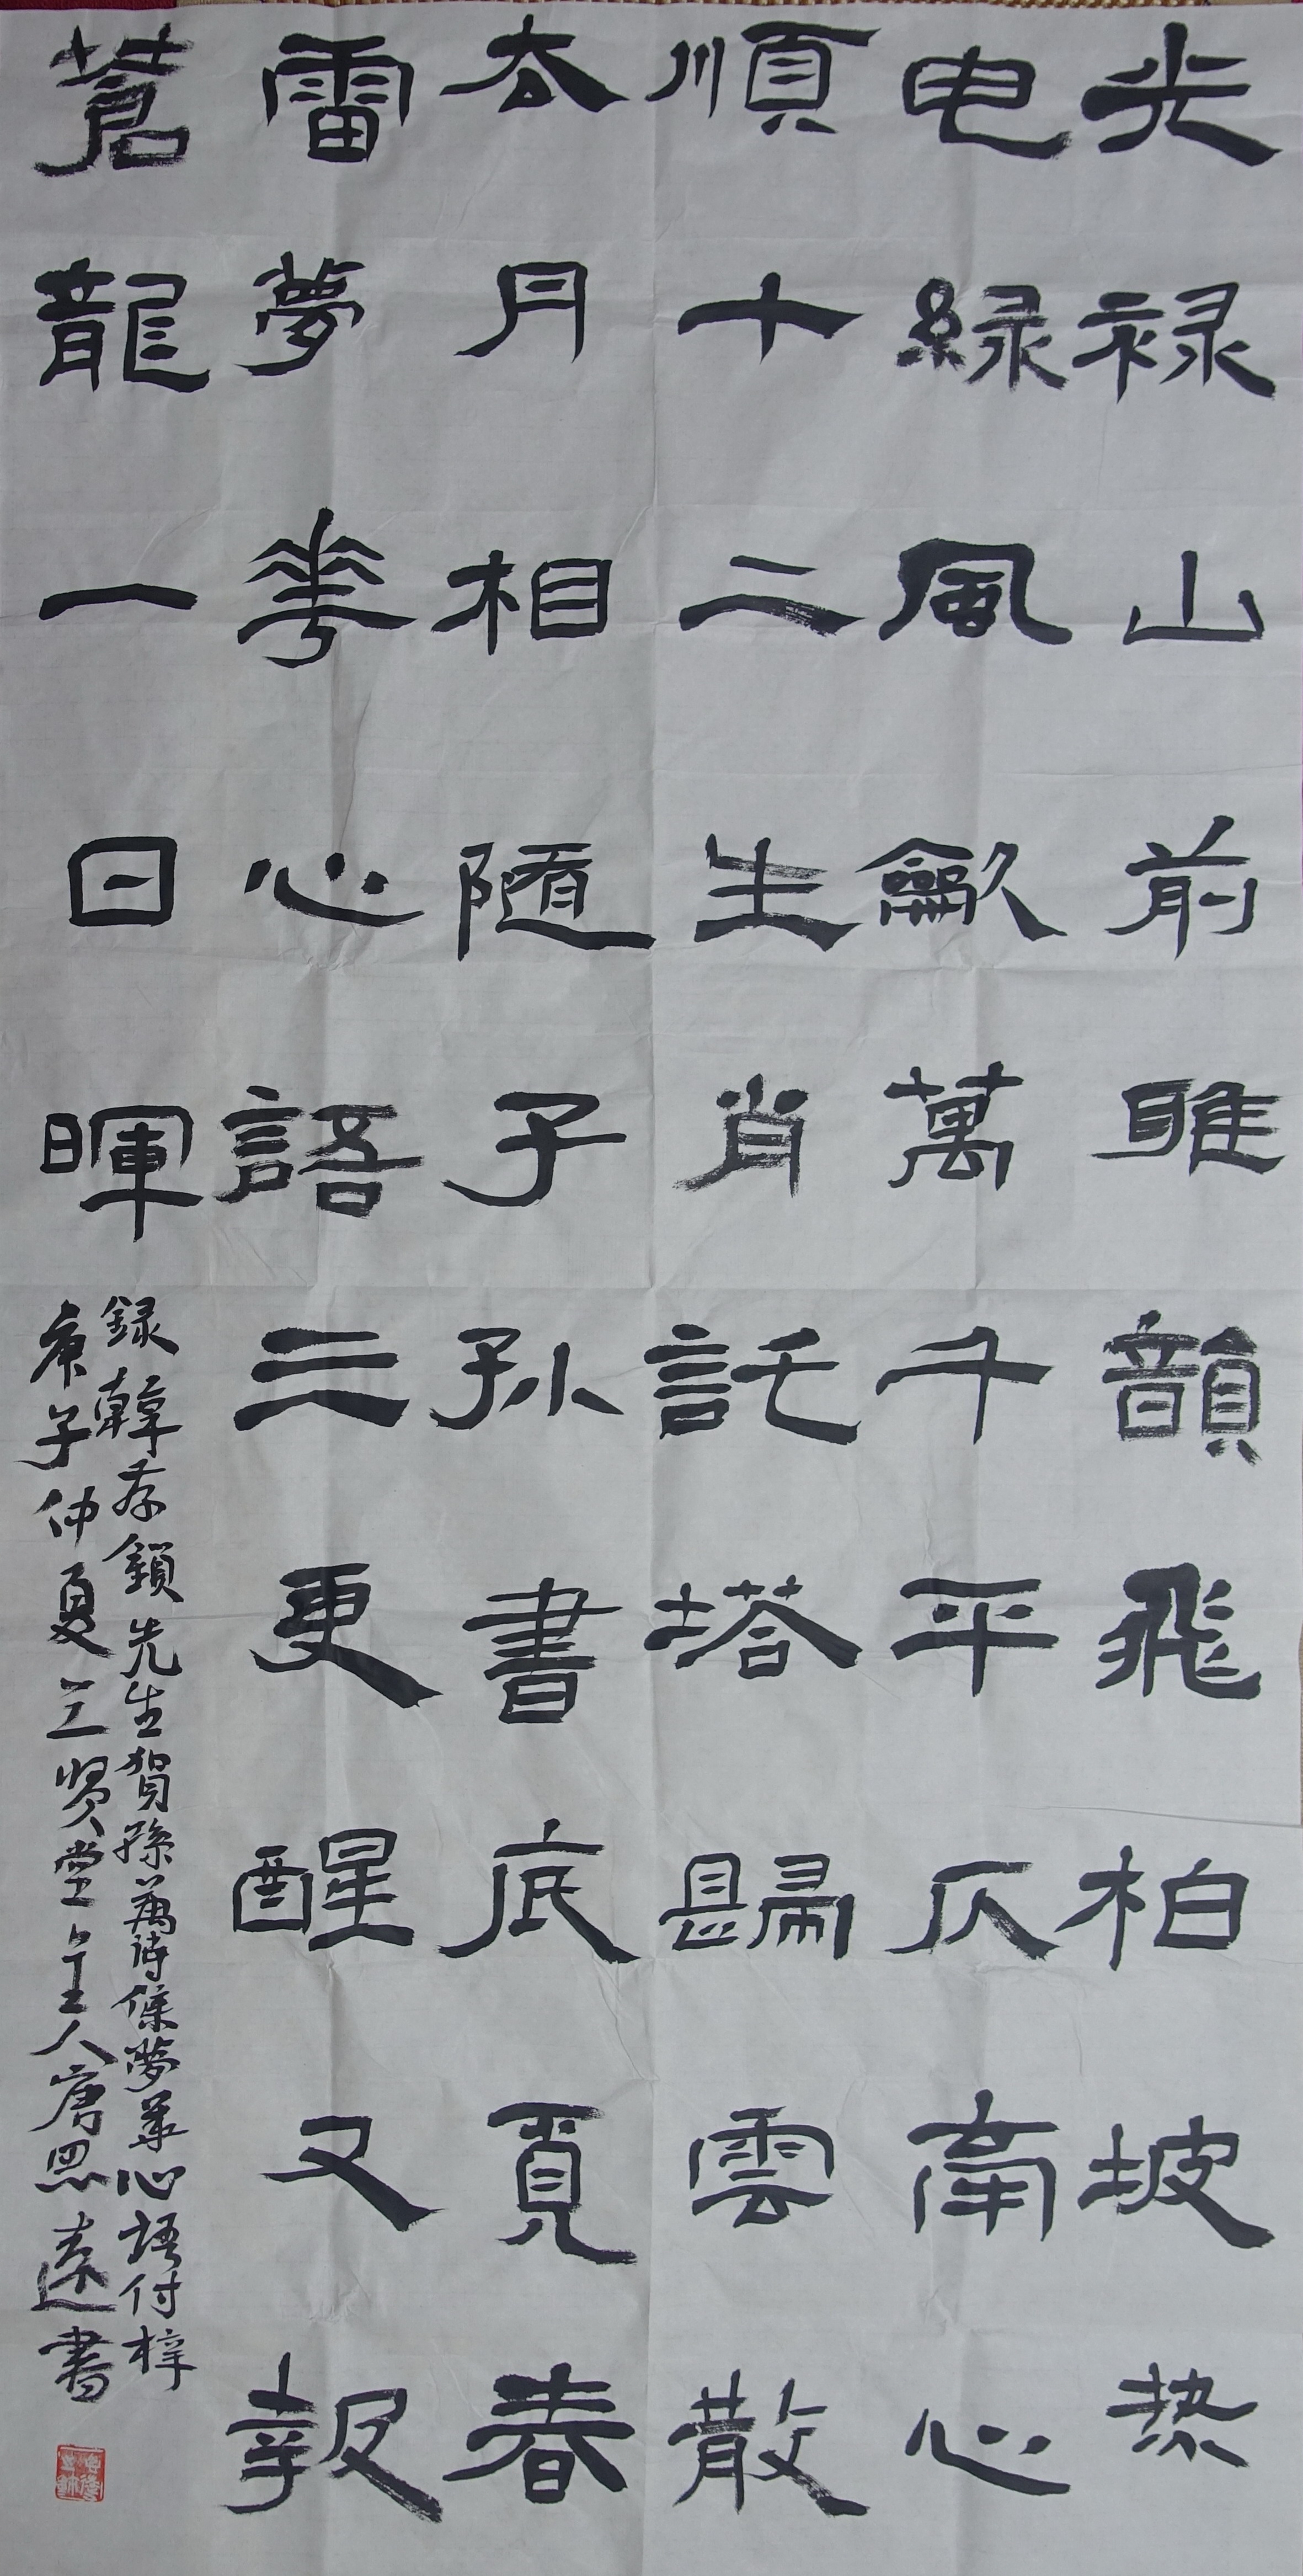 光禄山前雎韻飛柏坡热
电緑風龡萬千平仄南心
順十二生肖託塔歸雲散
去月相隨子孫書底覓春
雷夢華心語三更醒又報
蒼龍一日暉
録韓存鎖先生賀孫萬詩集夢華心語付梓
庚子仲夏三贤堂主人唐思遠書